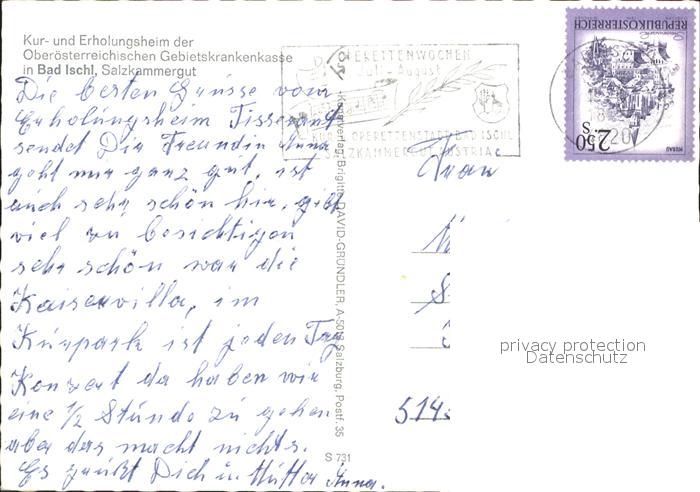 Kur- und Erholungsheim der
Oberösterreichischen Gebietskrankenkasse
in Bad Ischl, Salzkammergut
Die besten Grüsse vom
Erholungsheim Tisserand
sendet Dir Freundin Anna
geht mir ganz gut, ist
auch sehr schön hir, gibt
viel zu besichtigen
sehr schön war die
Kaiservilla, im
Kurpark ist jeden Tag
Konzert da haben wir
eine 1/2 Stunde zu gehen
aber das macht nichts.
Es grüßt Dich u. Mutter Anna.
OPERETTENWOCHEN
Juli August
KUR- OPERETTENSTADT BAD ISCHL
SALZKAMMERGUT AUSTRIA
REPUBLIK ÖSTERREICH
S 2.50
MURAU
18
20
Kunstverlag Brigitte DAVID-GRÜNDLER, A-5013 Salzburg, Postf. 35
S 731
Frau
514
privacy protection
Datenschutz